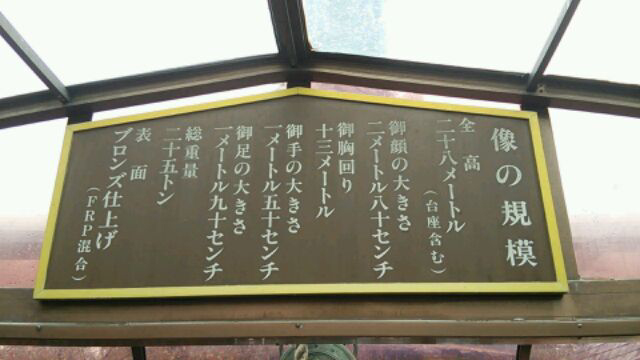 像の規模
全高
二十八メートル
(台座含む)
御顔の大きさ
二メートル八十センチ
御胸回り
十三メートル
御手の大きさ
一メートル五十センチ
御足の大きさ
一メートル九十センチ
総重量
二十五トン
表面
ブロンズ仕上げ
(FRP混合)